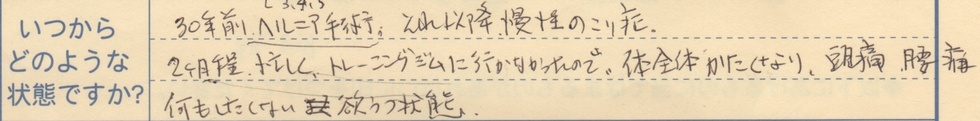 いつから
どのような
状態ですか?
L3,4,5
30年前、ヘルニア手術。それ以降、慢性のこり症。
2ヶ月程、忙しく、トレーニングジムに行かなかったので、体全体かたくなり、頭痛 腰痛
何もしたくない 欲うつ状態。